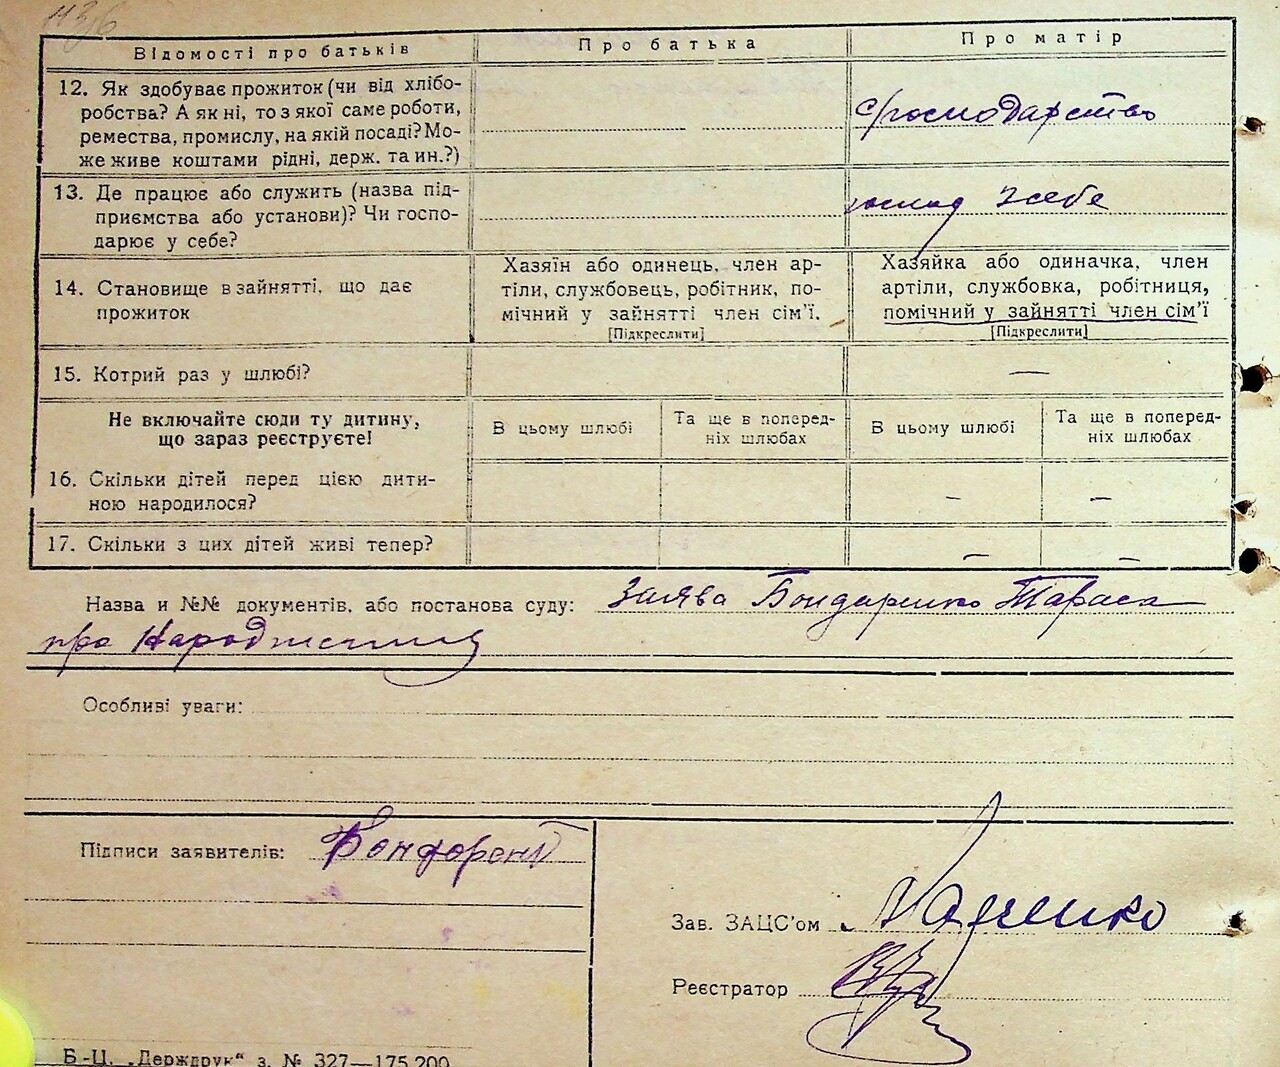 1136
Відомості про батьків
Про батька
Про матір
12. Як здобуває прожиток (чи від хлібо-
робства? А як ні, то з якої саме роботи,
ремества, промислу, на якій посаді? Мо-
же живе коштами рідні, держ. та ин.?)
с/господарство
13. Де працює або служить (назва під-
приємства або установи)? Чи госпо-
дарює у себе?
у себе
14. Становище в зайнятті, що дає
прожиток
Хазяїн або одинець, член ар-
тіли, службовець, робітник, по-
мічний у зайнятті член сім'ї.
[Підкреслити]
Хазяйка або одиначка, член
артіли, службовка, робітниця,
помічний у зайнятті член сім'ї
[Підкреслити]
15. Котрий раз у шлюбі?
—
Не включайте сюди ту дитину,
що зараз реєструєте!
В цьому шлюбі
Та ще в поперед-
ніх шлюбах
В цьому шлюбі
Та ще в поперед-
ніх шлюбах
16. Скільки дітей перед цією дити-
ною народилося?
– –
17. Скільки з цих дітей живі тепер?
– –
Назва и №№ документів, або постанова суду: Заява Бондаренко Тараса
про Народження
Особливі уваги:
Підписи заявителів: Бондорент
Зав. ЗАЦС'ом
Реєстратор
Б-Ц. „Держдрук“ з. № 327—175.200